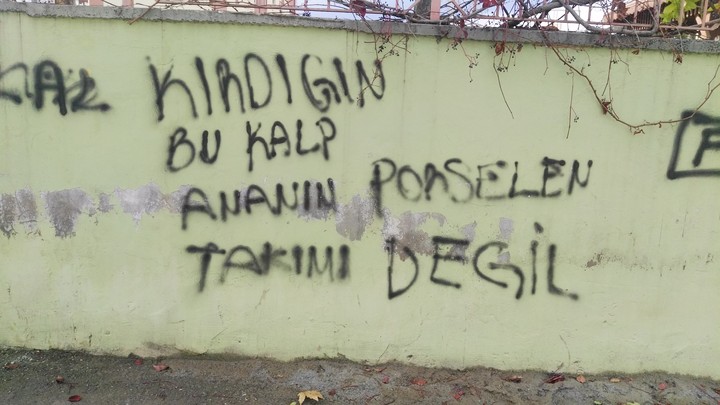 KIRDIGIN
BU KALP
ANANIN PORSELEN
TAKIMI DEGİL